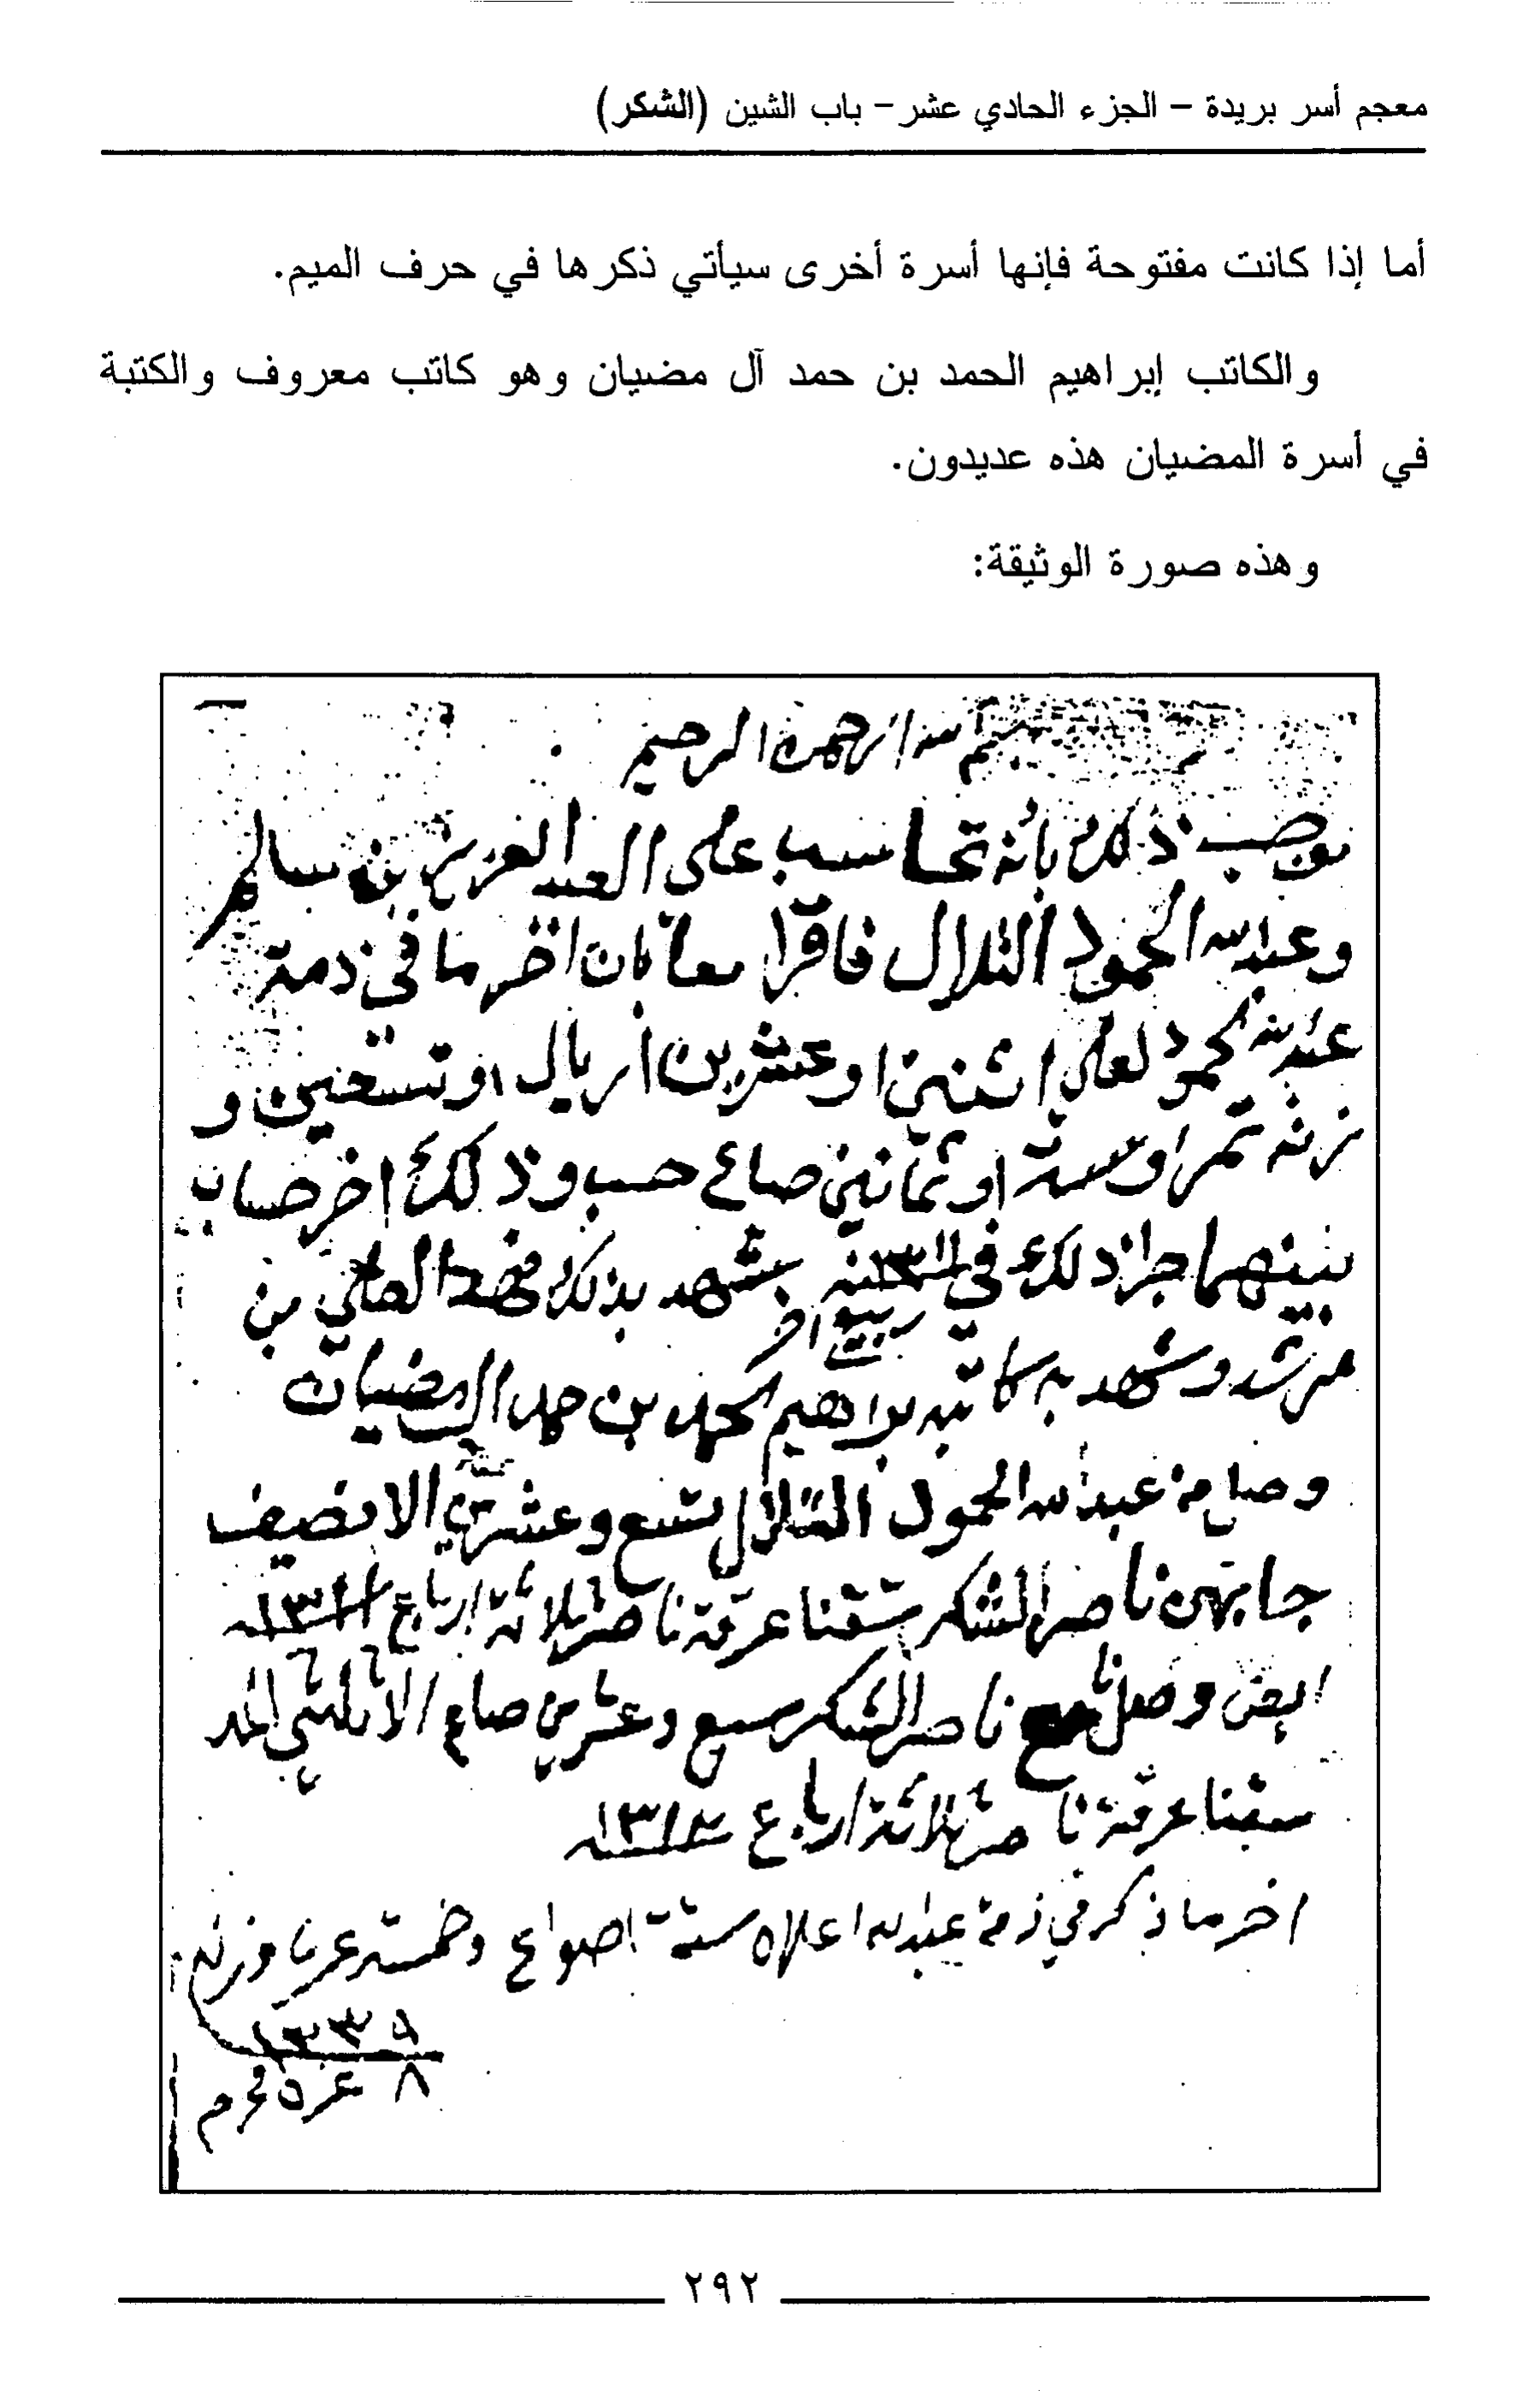 معجم أسر بريدة – الجزء الحادي عشر – باب الشين (الشكر)
أما إذا كانت مفتوحة فإنها أسرة أخرى سيأتي ذكرها في حرف الميم.
والكاتب إبراهيم الحمد بن حمد آل مضيان وهو كاتب معروف والكتبة
في أسرة المضيان هذه عديدون.
وهذه صورة الوثيقة:
بسم الله الرحمن الرحيم
موجب ذلك بأنه تحاسب علي العبدالعزيز بن سالم
وعبدالله الحمود التلال فاقرا معا بان اخر ما في ذمة
عبدالله الحمود لعلي اثنين وعشرين اريال وتسعين و
زنه تمر اوستة اوثمانين صاع حب وذلك اخر حساب
بينهما جرا ذلك في سنة ربيع اخر يشهد بذلك فهد العلي بن
مرشد وشهد به كاتبه ابراهيم الحمد بن حمد ال مضيان
وصل من عبدالله الحمود التلال تسع وعشرين الا نصيف
جابهن ناصر الشكر سقنا عرقة ناصر ثلاثة ارباع
ايضا وصل مع ناصر الشكر سبع وعشرين صاع الا ثلثي المد
سقنا عرقة ناصر ثلاثة ارباع
اخر ما ذكر في ذمة عبدالله اعلاه ستة اصواع وخمسة عر وزنه
محرم
٢٩٢